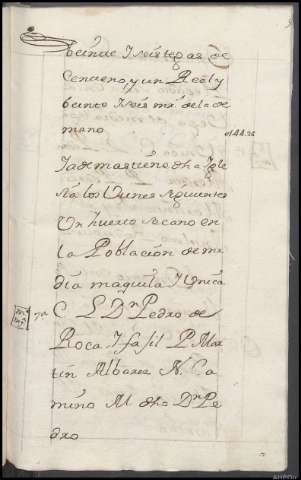 beinte y seis tegas de
Centeno y un Real y
beinte y seis m.s de la de
mano
Yademas tiene dha Igle
sia los Vienes siguientes
Un huerto secano en
la Poblacion de me
dia maquila Y linda
C. L. Dn Pedro de
Roca Y fasil P. Mar
tin Albarez N. Ca
mino M. dho Dn Pe
dro